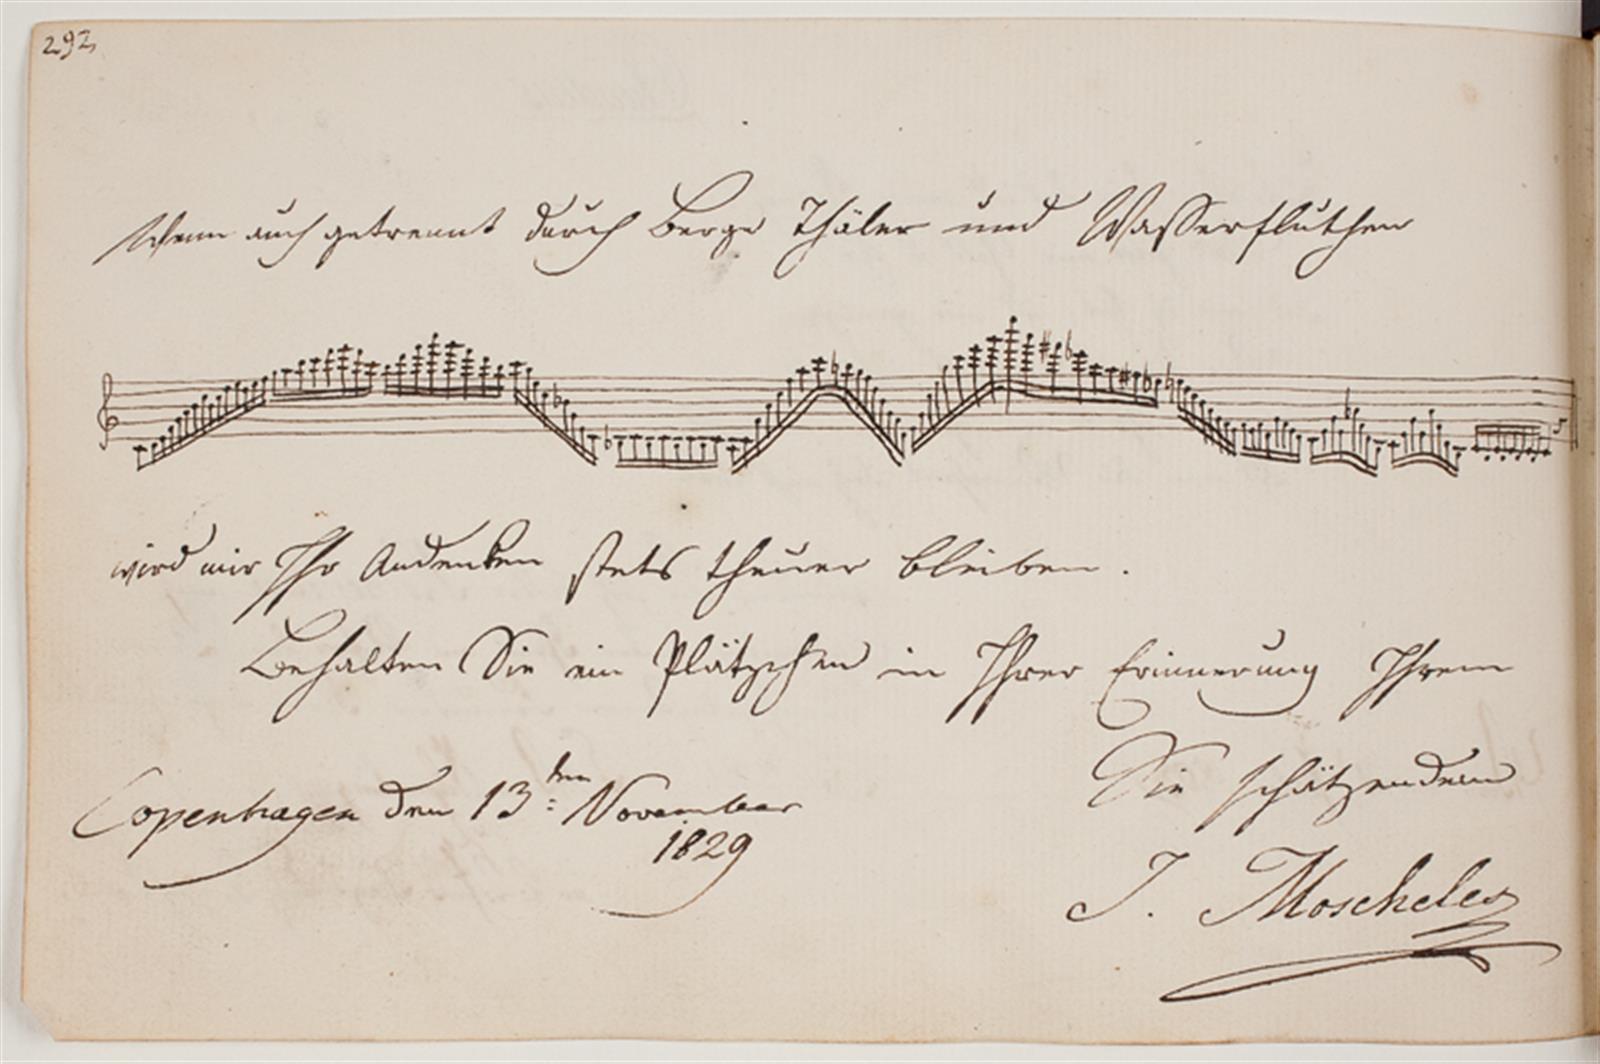 292,
Wenn auch getrennt durch Berge Thäler und Wasserfluthen
wird mir Ihr Andenken stets theuer bleiben.
Behalten Sie ein Plätzchen in Ihrer Erinnerung Ihrem
Sie schätzendem
Copenhagen den 13ten November
1829
J. Moscheles